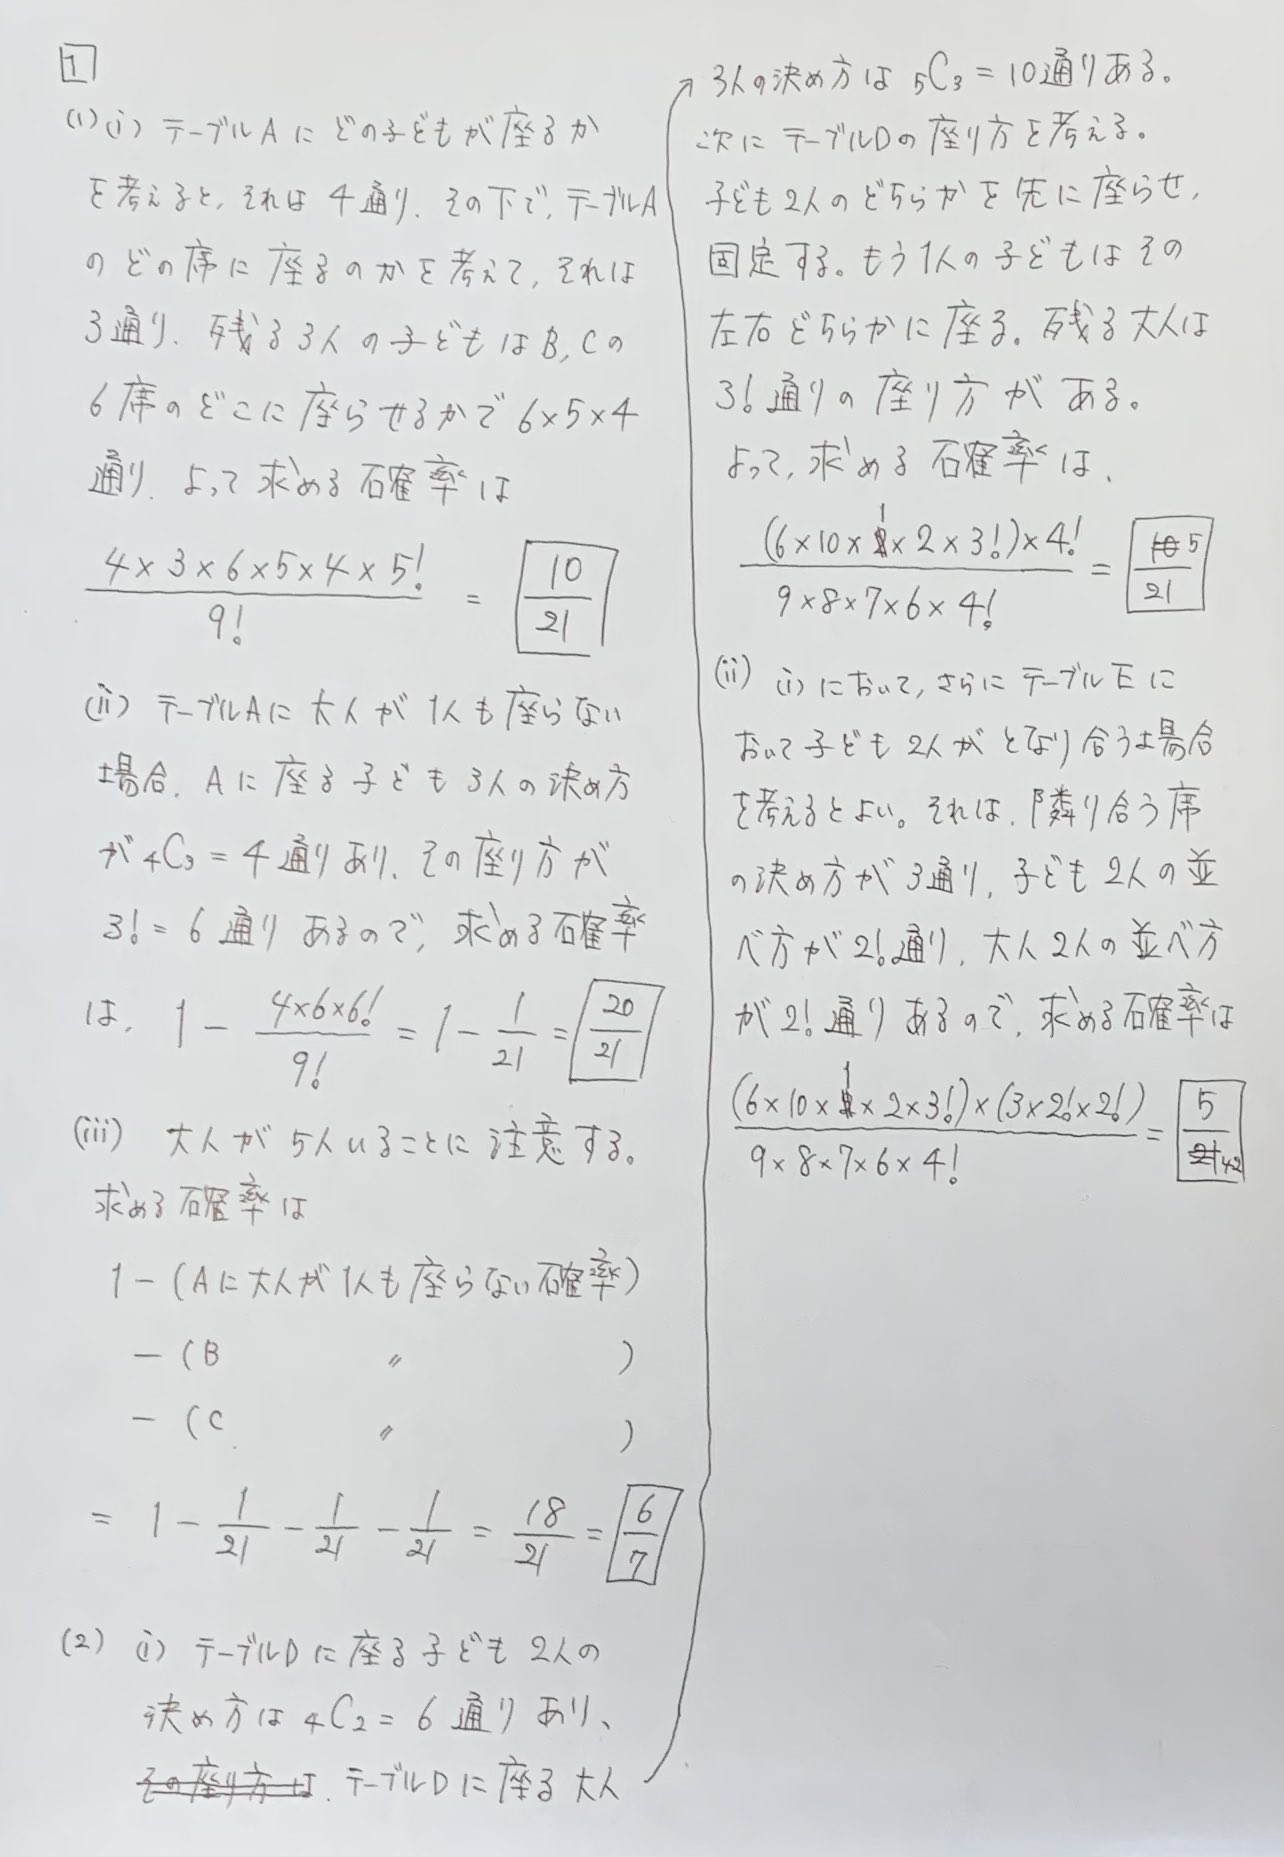 1
(1)(i) テーブルAにどの子どもが座るか
を考えると、それは 4通り、その下で、テーブルA
のどの席に座るのかを考えて、それは
3通り、残る3人の子どもはB,Cの
6席のどこに座らせるかで6×5×4
通り、よって求める確率は
4×3×6×5×4×5! / 9! = 10/21
(ii) テーブルAに大人が1人も座らない
場合、Aに座る子ども3人の決め方
が 4C3 = 4通りあり、その座り方が
3! = 6通りあるので、求める確率
は、1 - 4×6×6! / 9! = 1 - 1/21 = 20/21
(iii) 大人が5人いることに注意する。
求める確率は
1-(Aに大人が1人も座らない確率)
-(B 〃 )
-(C 〃 )
= 1 - 1/21 - 1/21 - 1/21 = 18/21 = 6/7
(2) (i) テーブルDに座る子ども2人の
決め方は 4C2 = 6通りあり、
その座り方は、テーブルDに座る大人
3人の決め方は 5C3 = 10通りある。
次にテーブルDの座り方を考える。
子ども2人のどちらかを先に座らせ、
固定する。もう1人の子どもはその
左右どちらかに座る。残る大人は
3!通りの座り方がある。
よって、求める確率は、
(6×10×1×2×3!)×4! / 9×8×7×6×4! = 5/21
(ii) (i)において、さらにテーブルEに
おいて子ども2人がとなり合う場合
を考えるとよい。それは、隣り合う席
の決め方が3通り、子ども2人の並
べ方が2!通り、大人2人の並べ方
が2!通りあるので、求める確率は
(6×10×1×2×3!)×(3×2!×2!) / 9×8×7×6×4! = 5/42